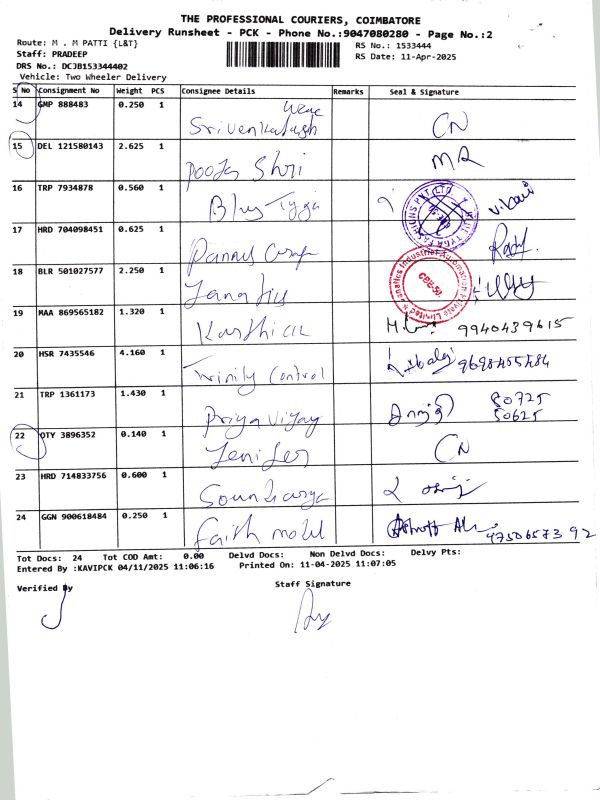 THE PROFESSIONAL COURIERS, COIMBATORE
Delivery Runsheet - PCK - Phone No.:9047080280 - Page No.:2
Route: M . M PATTI {L&T}
RS No.: 1533444
Staff: PRADEEP
RS Date: 11-Apr-2025
DRS No.: DCJB153344402
Vehicle: Two Wheeler Delivery
S No Consignment No Weight PCS Consignee Details Remarks Seal & Signature
14 GMP 888483 0.250 1 CN
15 DEL 121580143 2.625 1 Pooja Shri MR
16 TRP 7934878 0.560 1 Blue Tyga
17 HRD 704098451 0.625 1
18 BLR 501027577 2.250 1
19 MAA 869565182 1.320 1 Karthick 9940439615
20 HSR 7435546 4.160 1 Trinity Control
21 TRP 1361173 1.430 1 Priya Vijay 80725
50625
22 OTY 3896352 0.140 1 Jenifer CN
23 HRD 714833756 0.600 1
24 GGN 900618484 0.250 1 Faith 4750657392
Tot Docs: 24 Tot COD Amt: 0.00 Delvd Docs: Non Delvd Docs: Delvy Pts:
Entered By :KAVIPCK 04/11/2025 11:06:16 Printed On: 11-04-2025 11:07:05
Verified By
Staff Signature